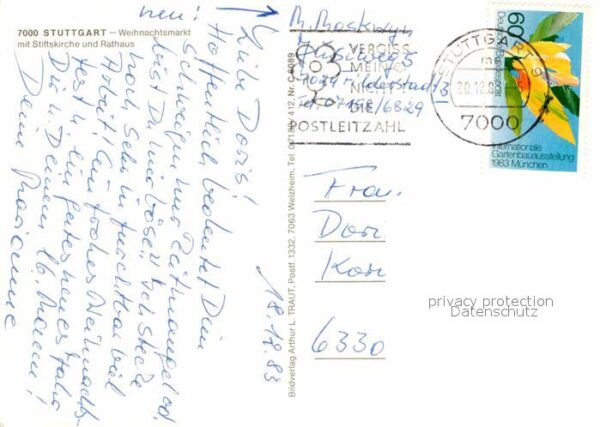 7000 STUTTGART – Weihnachtsmarkt
mit Stiftskirche und Rathaus
neu:
Liebe Doris!
Hoffentlich bedeutet Dein
Schweigen nur Zeitmangel od.
bist Du mir böse? Ich stecke
noch sehr in furchtbar viel
Arbeit! Ein frohes Weihnachts-
fest u. ein gutes neues Jahr
Dir u. Deinem lb. Mann!
Deine Marianne
18.12.83
Bildverlag Arthur L. TRAUT, Postf. 1332, 7063 Welzheim, Tel. 07182/412, Nr. C 6089
M.
7034
Tel. 07156/6829
VERGISS
MEIN
NICHT
DIE
POSTLEITZAHL
STUTTGART 9
20.12.
7000
60
Internationale
Gartenbauausstellung
1983 München
Frau
Dor
Kor
6330
privacy protection
Datenschutz